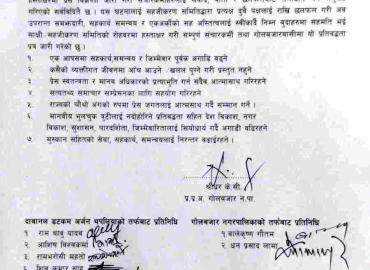 गरिएको सर्वविदितै छ । यस घटनालाई सहजीकरण समितिद्वारा प्रत्यक्ष दुवै पक्षलाई राखि छलफल गरी अब
उपरान्त समझदारी, सहकार्य समन्वय र एकअर्काको सह अस्तित्वलाई स्वीकार्दै निम्न बुदाहरुमा सहमति भई
साक्षी सहजीकरण समितिको रोहवरमा हस्ताक्षर गरी सम्पूर्ण संचारकर्मी तथा गोलबजारवासीमा यो प्रतिबद्धता
पत्र जारी गरेको छु ।
१ एक आपसमा सहकार्य,समन्वय र जिम्मेवार पूर्वक अगाडि बढ्ने
२. कसैको व्यक्तीगत जीवनमा आँच आउने -खलल पुग्ने गरी प्रस्तुत नहुने
३. प्रेस स्वतन्त्रता र मानव अधिकारको प्रत्याभूति गर्न सदैव आत्मसाथ गरिरहने
४ सत्यतथ्य समाचार सम्प्रेसनका लागि सहयोग गरिरहने
५. राज्यको चौथो अंगको रुपमा प्रेस जगतलाई आत्मसाथ गर्दै सम्मान गर्ने ।
६. मानवीय भुलचुक त्रुटीलाई नदोहोरिने प्रतिबद्धता सहित देश विकाश, नगर
विकाश, सुशासन, पारदर्शिता, जिम्मेवारितालाई सिरोधार्य गर्दै अगाडी बढिरहने
७. मुस्कान सहितको सेवा, सहकार्य, समन्वयलाई निरन्तर बढाईरहने ।
श्रीधर के.सी.
प्र.प्र.अ. गोलबजार न.पा.
दावानल डटकम बर्जन थपलियाको तर्फबाट प्रतिनिधि गोलबजार नगरपालिकाको तर्फबाट प्रतिनिधि
१ राम बाबु यादव १.बालेकृष्ण गौतम
२. आशिष विश्वकर्मा २ धन प्रसाद लामा
३ रामभरोसी महतो
४ शिव कुमार साह